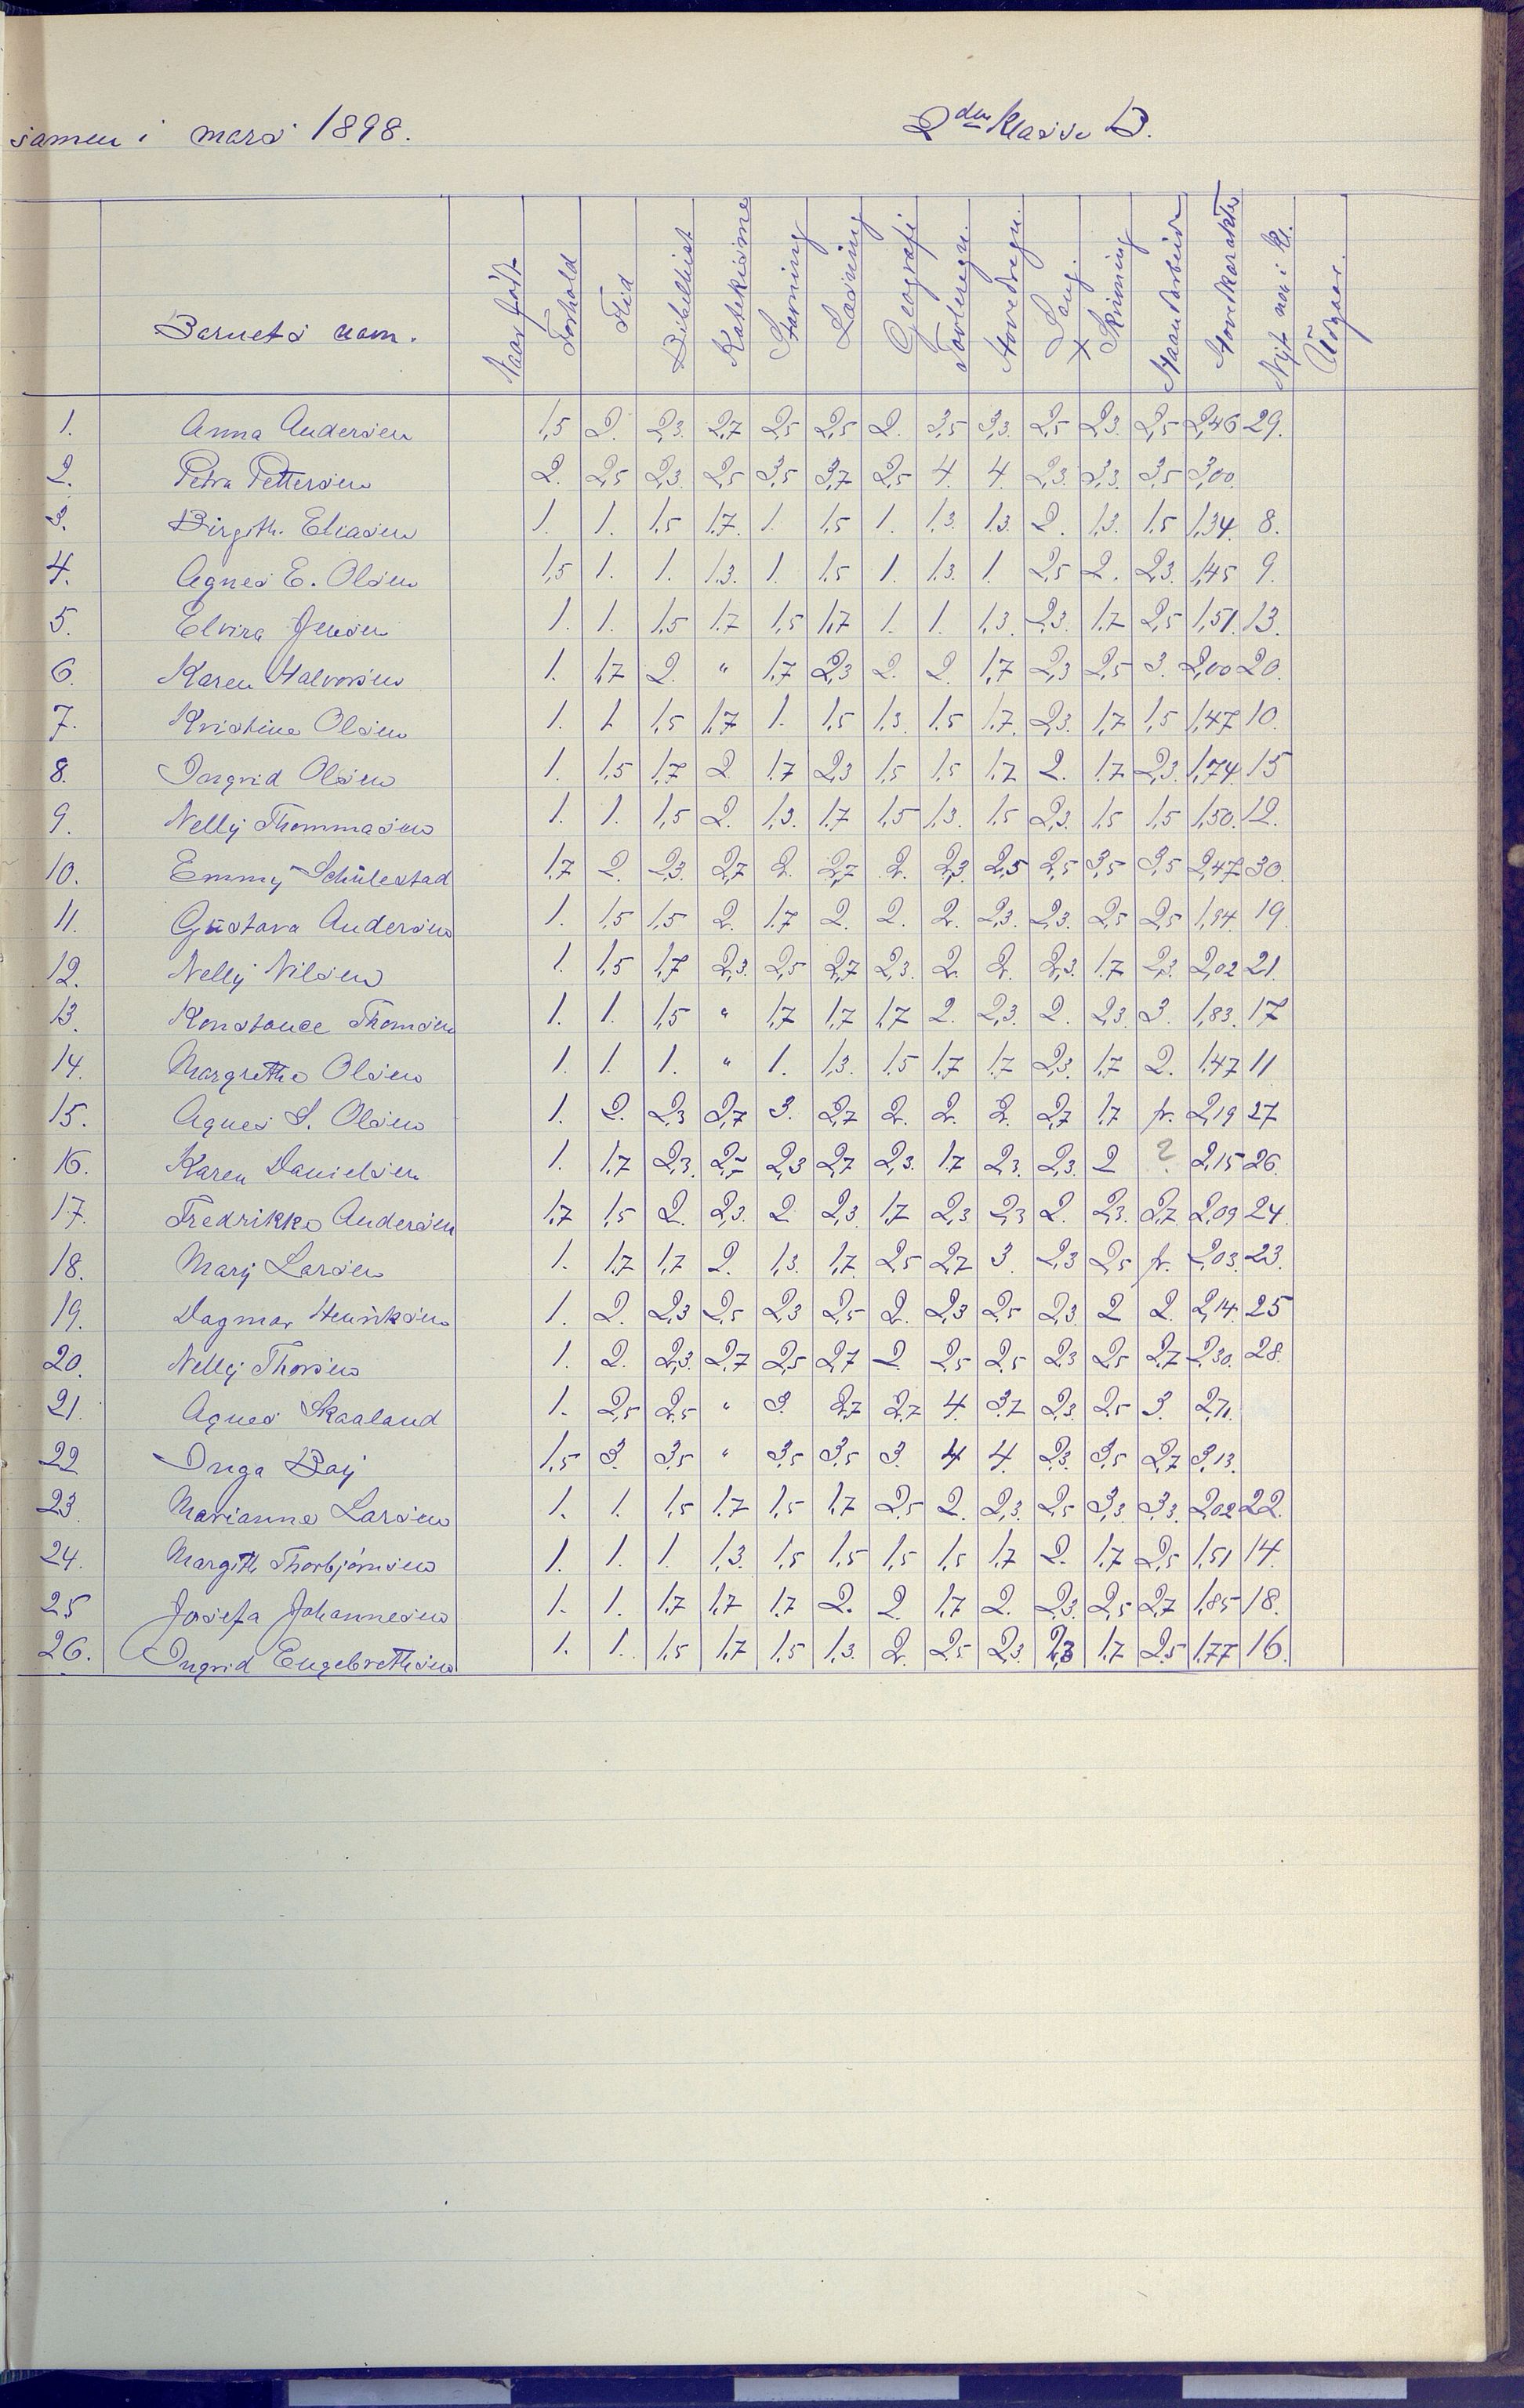 samen i mars 1898. 2den Klasse B.
Barnets navn. Naar født Forhold Flid Bibelhist Katekisme Stavning Læsning Geografi Tavleregn. Hovedregn. Sang. + Skrivning Haandarbeide Hovedkarakter Nyt no i kl. Udgaae.
1. Anna Andersen 1,5 2. 2,3. 2,7 2,5 2,5 2. 3,5 3,3. 2,5 2,3. 2,5 2,46 29.
2. Petra Pettersen 2. 2,5 2,3. 2,5 3,5 3,7 2,5 4. 4. 2,3. 3,3. 3,5 3,00
3. Birgith. Eliasen 1. 1. 1,5 1,7. 1. 1,5 1. 1,3. 1,3 2. 1,3. 1,5 1,34. 8.
4. Agnes E. Olsen 1,5 1. 1. 1,3. 1. 1,5 1. 1,3. 1. 2,5 2. 2,3. 1,45 9.
5. Elvira Jensen 1. 1. 1,5 1,7 1,5 1,7 1. 1. 1,3. 2,3. 1,7 2,5 1,51. 13.
6. Karen Halvorsen 1. 1,7 2. " 1,7 2,3 2. 2. 1,7 2,3 2,5 3. 2,00 20.
7. Kristine Olsen 1. 1 1,5 1,7 1. 1,5 1,3. 1,5 1,7. 2,3. 1,7 1,5 1,47 10.
8. Ingrid Olsen 1. 1,5 1,7 2. 1,7 2,3 1,5 1,5 1,7 2. 1,7 2,3. 1,74. 15
9. Nelly Thommasen 1. 1. 1,5 2. 1,3. 1,7 1,5 1,3. 1,5 2,3. 1,5 1,5 1,50. 12.
10. Emmy Schülestad 1,7 2. 2,3. 2,7 2. 2,7 2. 2,3 2,5 2,5 3,5 3,5 2,47 30.
11. Gustava Andersen 1. 1,5 1,5 2. 1,7 2. 2. 2. 2,3. 2,3. 2,5 2,5 1,94. 19.
12. Nelly Nilsen 1. 1,5 1,7 2,3. 2,5 2,7 2,3. 2. 2. 2,3. 1,7 2,3. 2,02 21.
13. Konstance Thomsen 1. 1. 1,5 " 1,7 1,7 1,7 2. 2,3. 2. 2,3. 3. 1,83. 17
14. Margrethe Olsen 1. 1. 1. " 1. 1,3. 1,5 1,7 1,7 2,3. 1,7 2. 1,47 11
15. Agnes S. Olsen 1. 2. 2,3 2,7 3. 2,7 2. 2. 2. 2,7 1,7 fr. 2,19 27
16. Karen Danielsen 1. 1,7 2,3. 2,5 2,3 2,7 2,3. 1,7 2,3. 2,3. 2 ? 2,15 26.
17. Fredrikke Andersen 1,7 1,5 2. 2,3. 2. 2,3 1,7 2,3 2,3 2. 2,3. 2,7. 2,09 24.
18. Mary Larsen 1. 1,7 1,7 2. 1,3. 1,7. 2,5 2,7 3. 2,3 2,5 fr. 2,03. 23.
19. Dagmar Henriksen 1. 2. 2,3 2,5 2,3 2,5 2. 2,3 2,5 2,3. 2 2. 2,14. 25
20. Nelly Thorsen 1. 2. 2,3. 2,7 2,5 2,7 2. 2,5 2,5 2,3 2,5 2,7 2,30. 28.
21. Agnes Skaaland 1. 2,5 2,5 " 3. 2,7 2,7 4. 3,7 2,3. 2,5 3. 2,71.
22 Inga Bay 1,5 3. 3,5 " 3,5 3,5 3. 4 4. 2,3. 3,5 2,7 3,13.
23. Marianne Larsen 1. 1. 1,5 1,7 1,5 1,7 2,5 2. 2,3. 2,5 3,3 3,3. 2,02 22.
24. Margith Thorbjørnsen 1. 1. 1. 1,3. 1,5 1,5 1,5 1,5 1,7 2. 1,7 2,5 1,51 14.
25 Josefa Johannesen 1. 1. 1,7 1,7 1,7 2. 2. 1,7 2. 2,3. 2,5 2,7 1,85 18.
26. Ingrid Engebrethsen 1. 1. 1,5 1,7 1,5 1,3. 2. 2,5 2,3. 2,3 1,7 2,5 1,77 16.